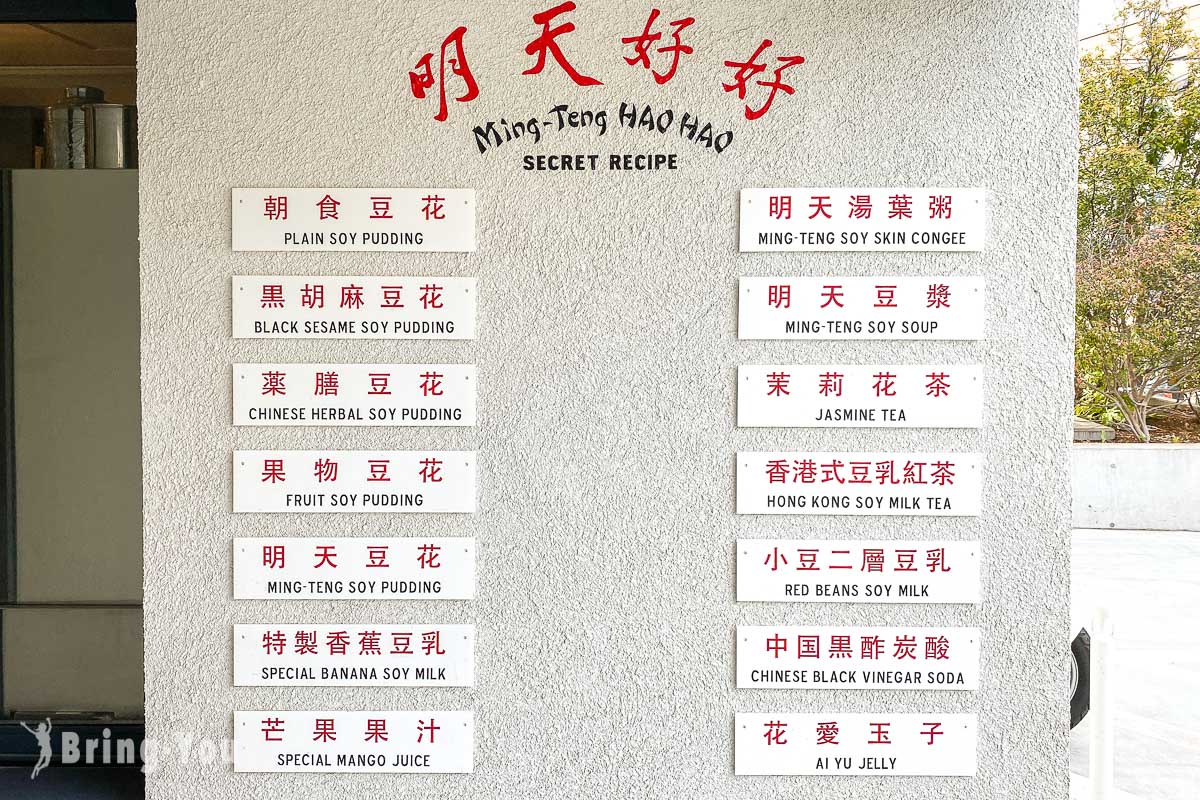 明天好好
Ming-Teng HAO HAO
SECRET RECIPE
朝食豆花
PLAIN SOY PUDDING
黒胡麻豆花
BLACK SESAME SOY PUDDING
薬膳豆花
CHINESE HERBAL SOY PUDDING
果物豆花
FRUIT SOY PUDDING
明天豆花
MING-TENG SOY PUDDING
特製香蕉豆乳
SPECIAL BANANA SOY MILK
芒果果汁
SPECIAL MANGO JUICE
明天湯葉粥
MING-TENG SOY SKIN CONGEE
明天豆漿
MING-TENG SOY SOUP
茉莉花茶
JASMINE TEA
香港式豆乳紅茶
HONG KONG SOY MILK TEA
小豆二層豆乳
RED BEANS SOY MILK
中国黒酢炭酸
CHINESE BLACK VINEGAR SODA
花愛玉子
AI YU JELLY
Bring-You